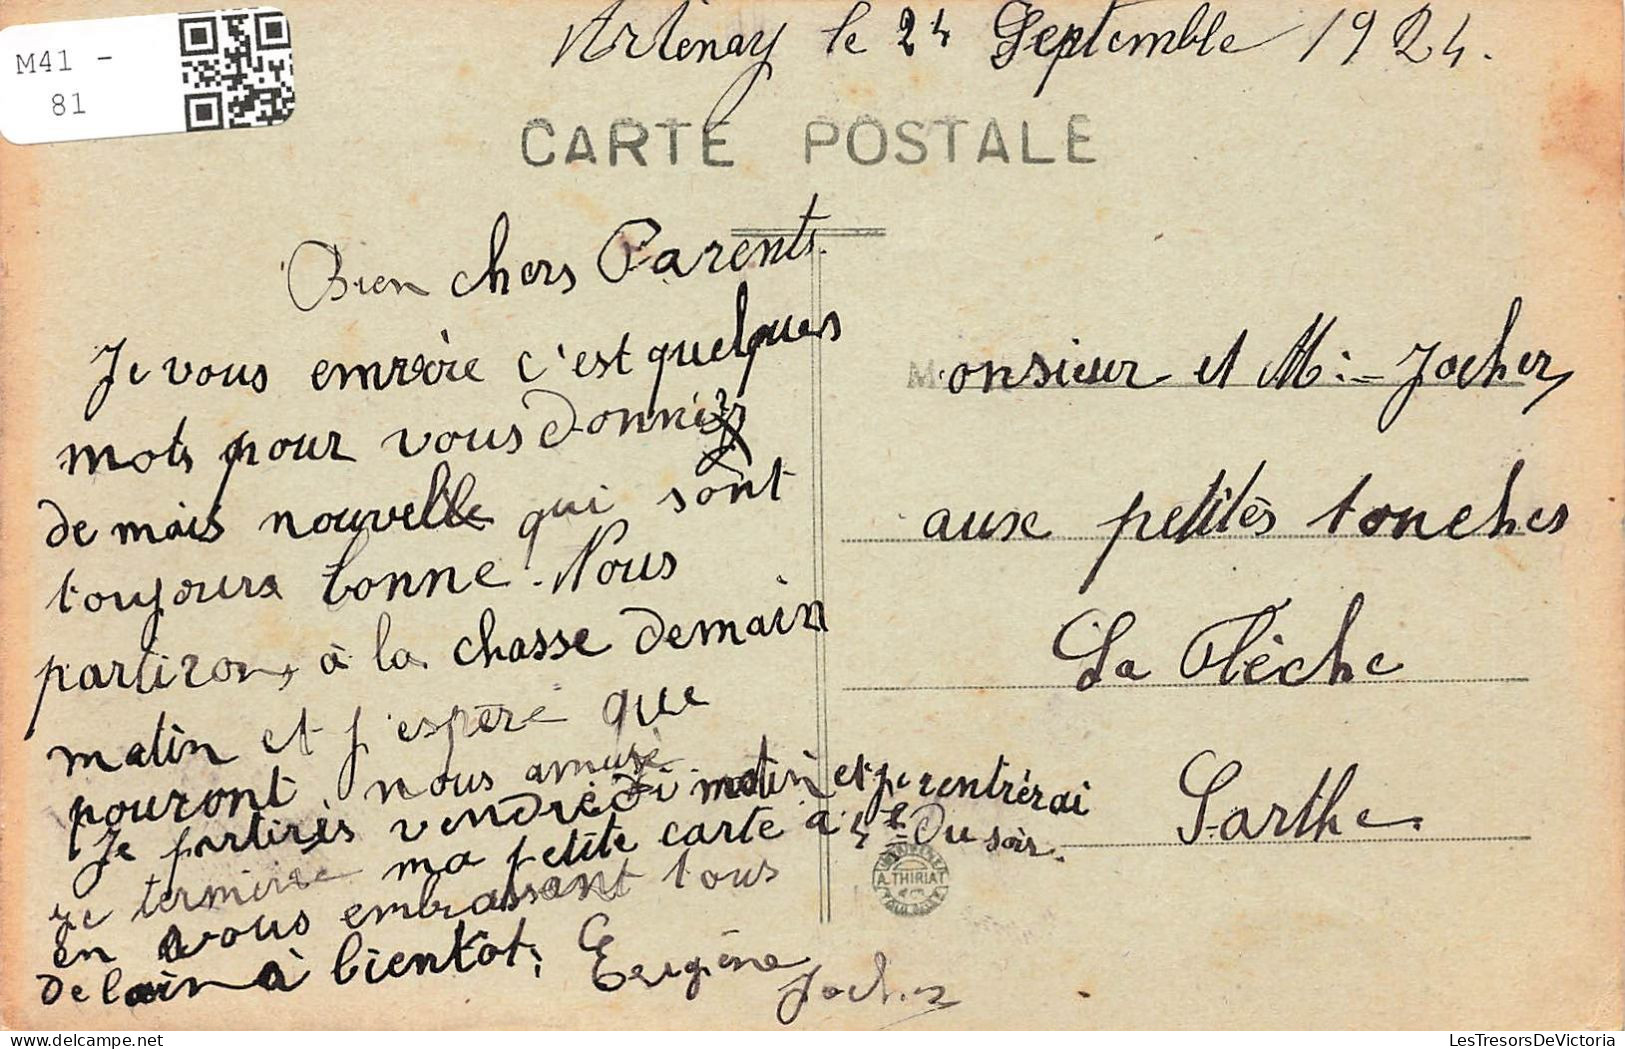 M41 -
81
Artenay le 24 Septembre 1924.
CARTE POSTALE
Bien chers Parents.
Je vous emrère c'est quelques
mots pour vous donniez
de mais nouvelle qui sont
toujours bonne. Nous
partirons à la chasse demain
matin et j'espère que
pouront nous amusé
Je partirès vendredi matin et je rentrèrai
à 4h du soir.
Je terminie ma petite carte
en vous embrassant tous
de loin à bientôt.
Eugène
Jocher
Monsieur et M: Jocher
aux petites touches
La Flèche
Sarthe.
A. THIRIAT
LesTresorsDeVictoria